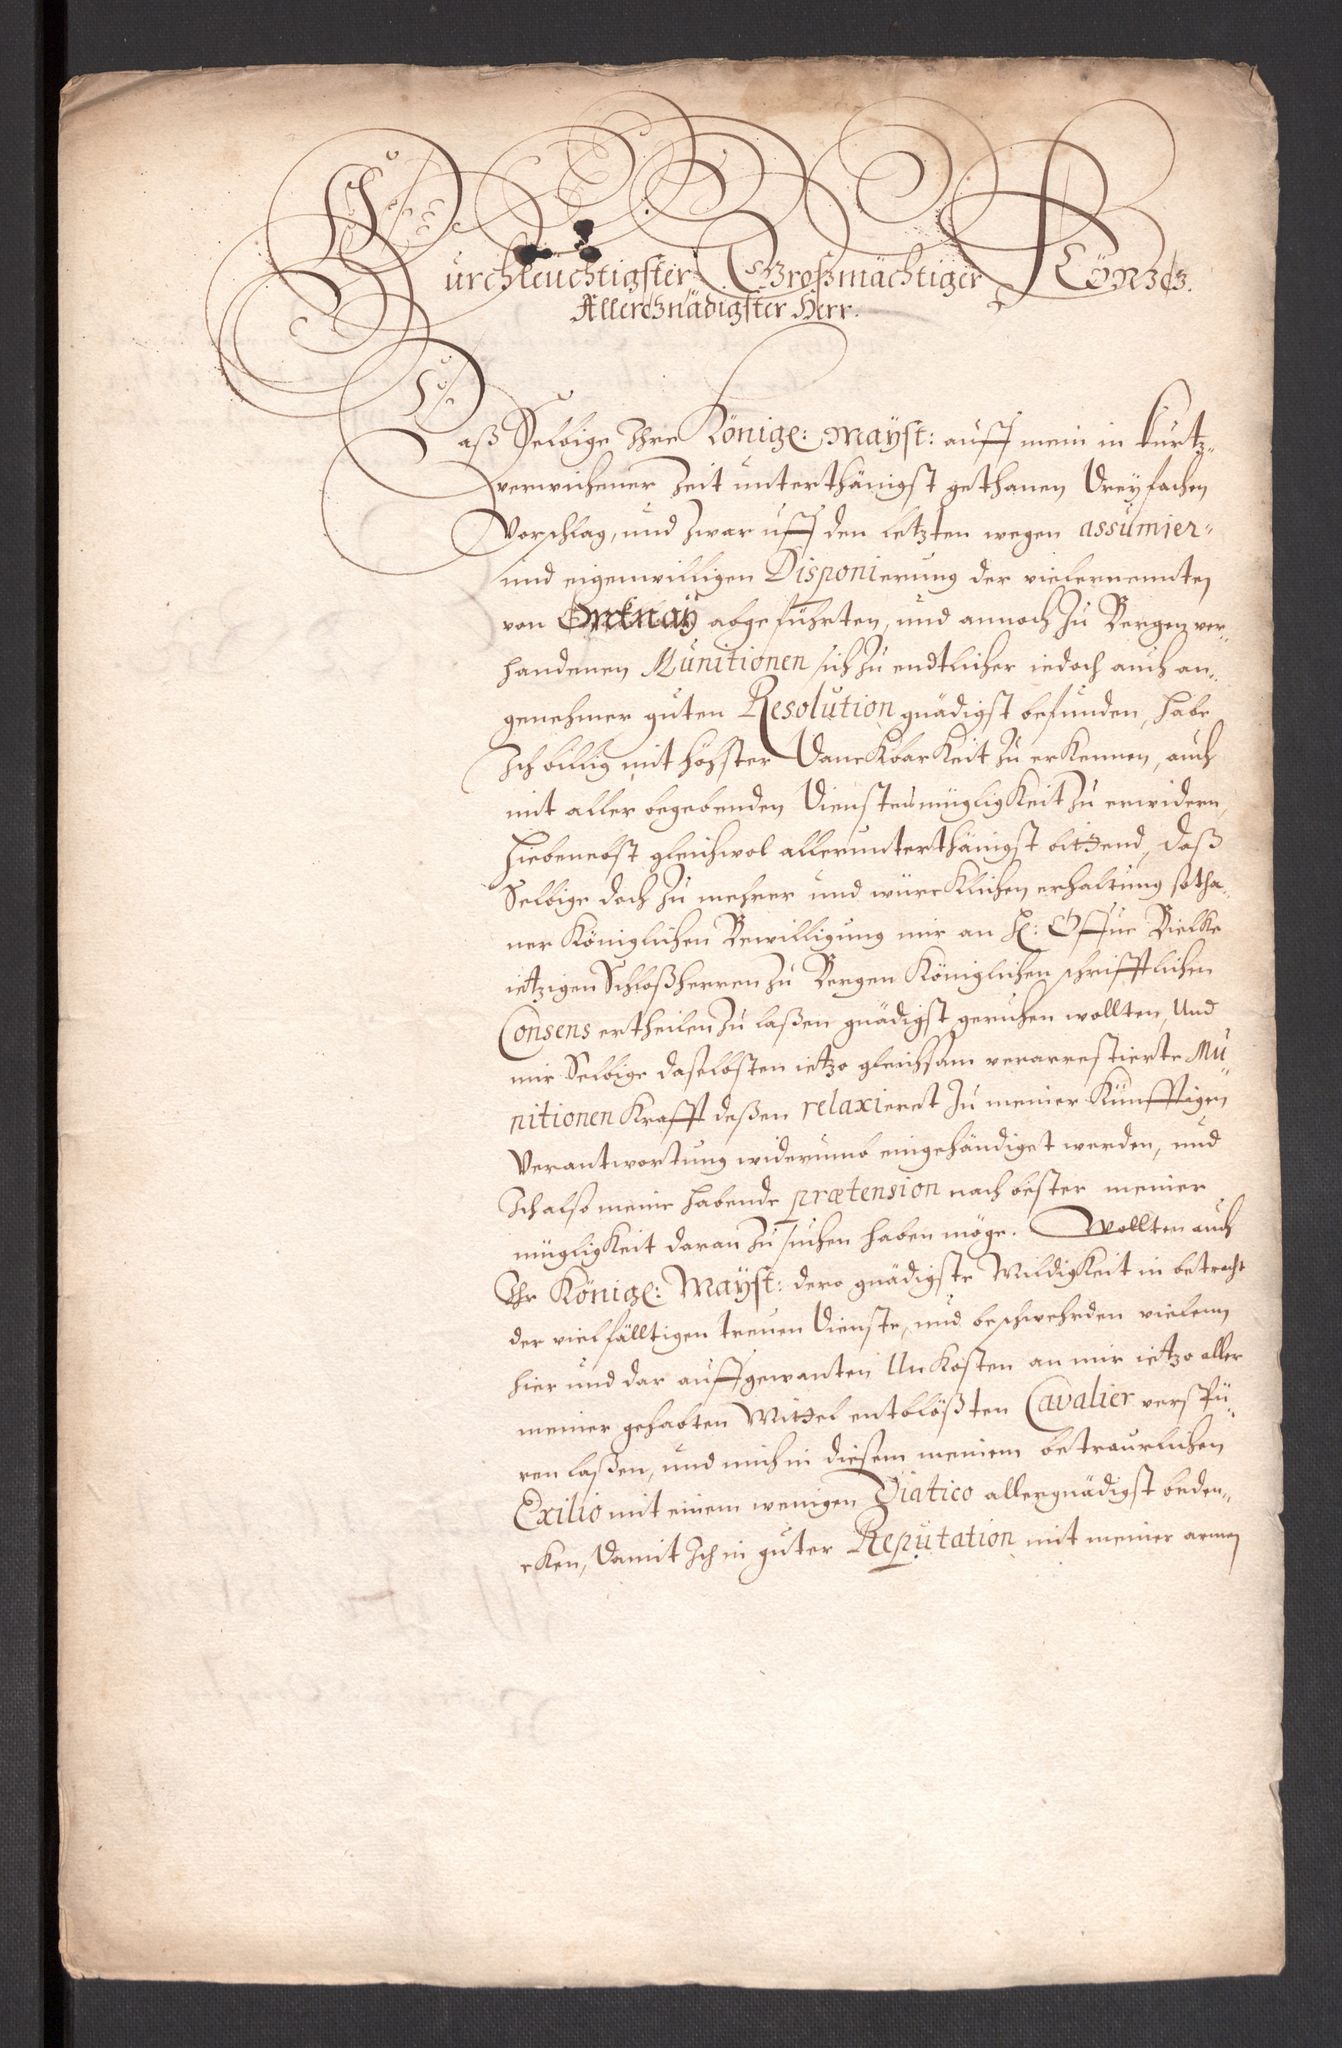 Durchleuchtigster Großmächtiger König.
Allergnädigster Herr.
Daß Selbige Ihre Königl: Mayst: auff mein in kurtz-
verwichener Zeit unterthänigst gethanen Dreyfachen
Vorschlag, und zwar uff den letzten wegen assumier-
und eigenwilligen Disponierung der vielernennten
von Orknay abgeführten, und annoch zu Bergen ver-
handenen Munitionen sich zu endtlicher iedoch auch an-
genehmer guten Resolution gnädigst befunden, habe
Ich billig mit höhster Danckbarkeit zu erkennen, auch
mit aller begebenden Dienstesmügligkeit zu erwidern,
Hiebenebst gleichwol allerunterthänigst bittend, daß
Selbige doch zu mehrer und würcklichen erhaltung sotha-
ner Königlichen Bewilligung mir an H: Offue Bielke
ietzigen Schloßherren zu Bergen Königlichen schrifftlichen
Consens ertheilen zu laßen gnädigst geruhen wollten, Und
mir Selbige daselbsten ietzo gleichsam verarrestierte Mu-
nitionen Krafft deßen relaxieret zu meiner Künfftigen
Verantwortung widerumb eingehändiget werden, und
Ich also meine habende prætension nach bester meiner
mügligkeit daran zu suchen haben möge. Wollten auch
Ihr Königl: Mayst: dero gnädigste Mildigkeit in betracht
der vielfälltigen treuen Dienste, und beschwehrden vielem
hier und dar auffgewanten Unkosten an mir ietzo aller
meiner gehabten Mittel entblößten Cavalier verspü-
ren laßen, und mich in diesem meinem betraurlichen
Exilio mit einem wenigen Viatico allergnädigst beden-
cken, Damit Ich in guter Reputation mit meiner armen